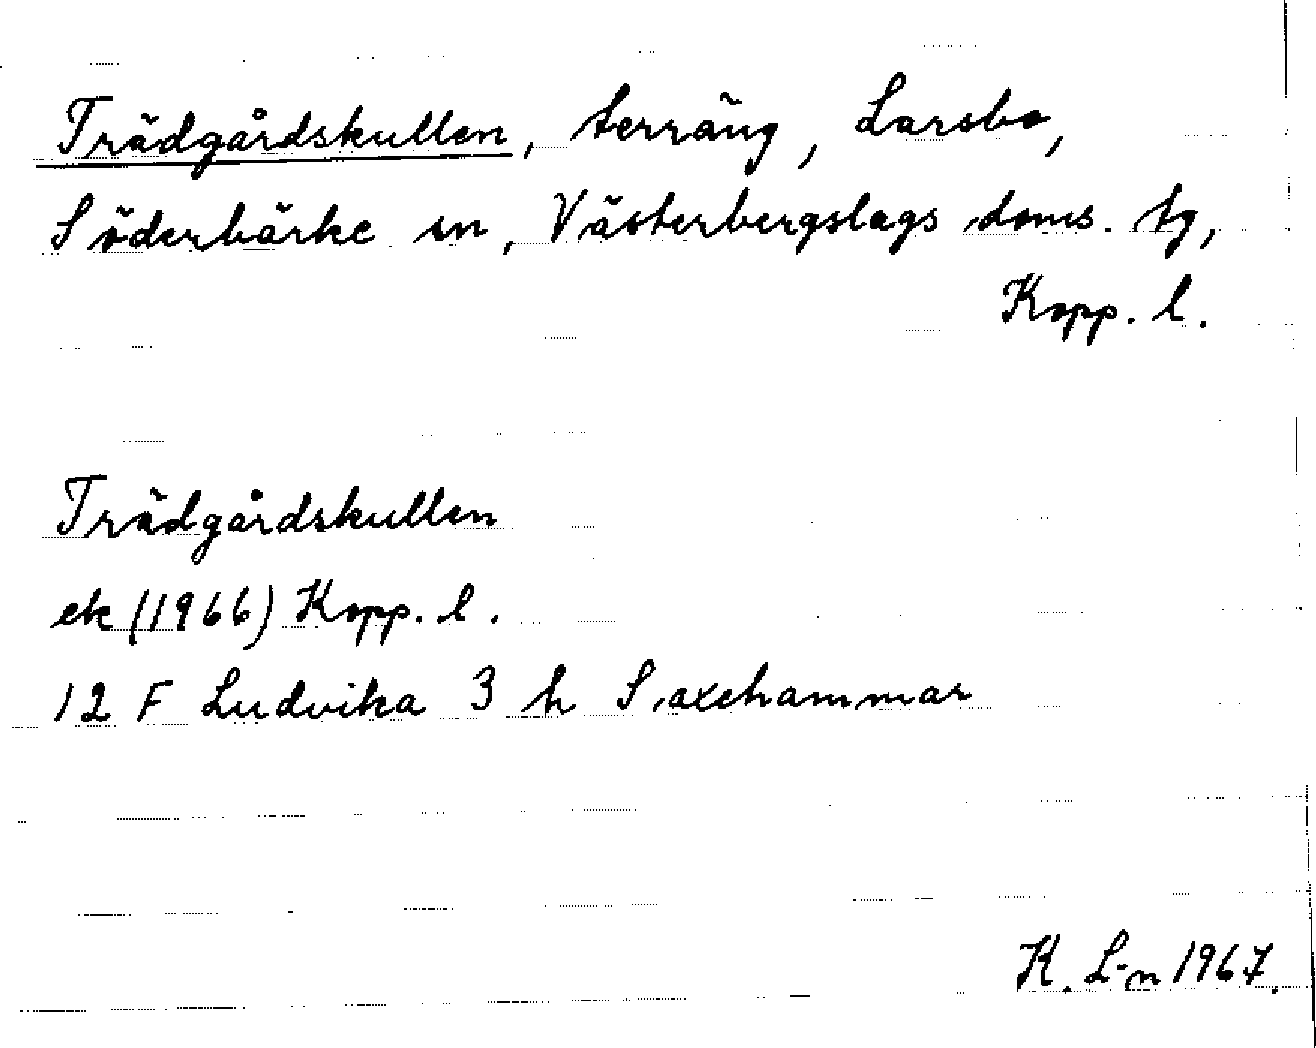 Trädgårdskullen, terräng, Larsbo,
Söderbärke sn, Västerbergslags doms. tg,
Kopp. l.
Trädgårdskullen
ek (1966) Kopp. l.
12 F Ludvika 3 h Saxehammar
K. L-n 1967.